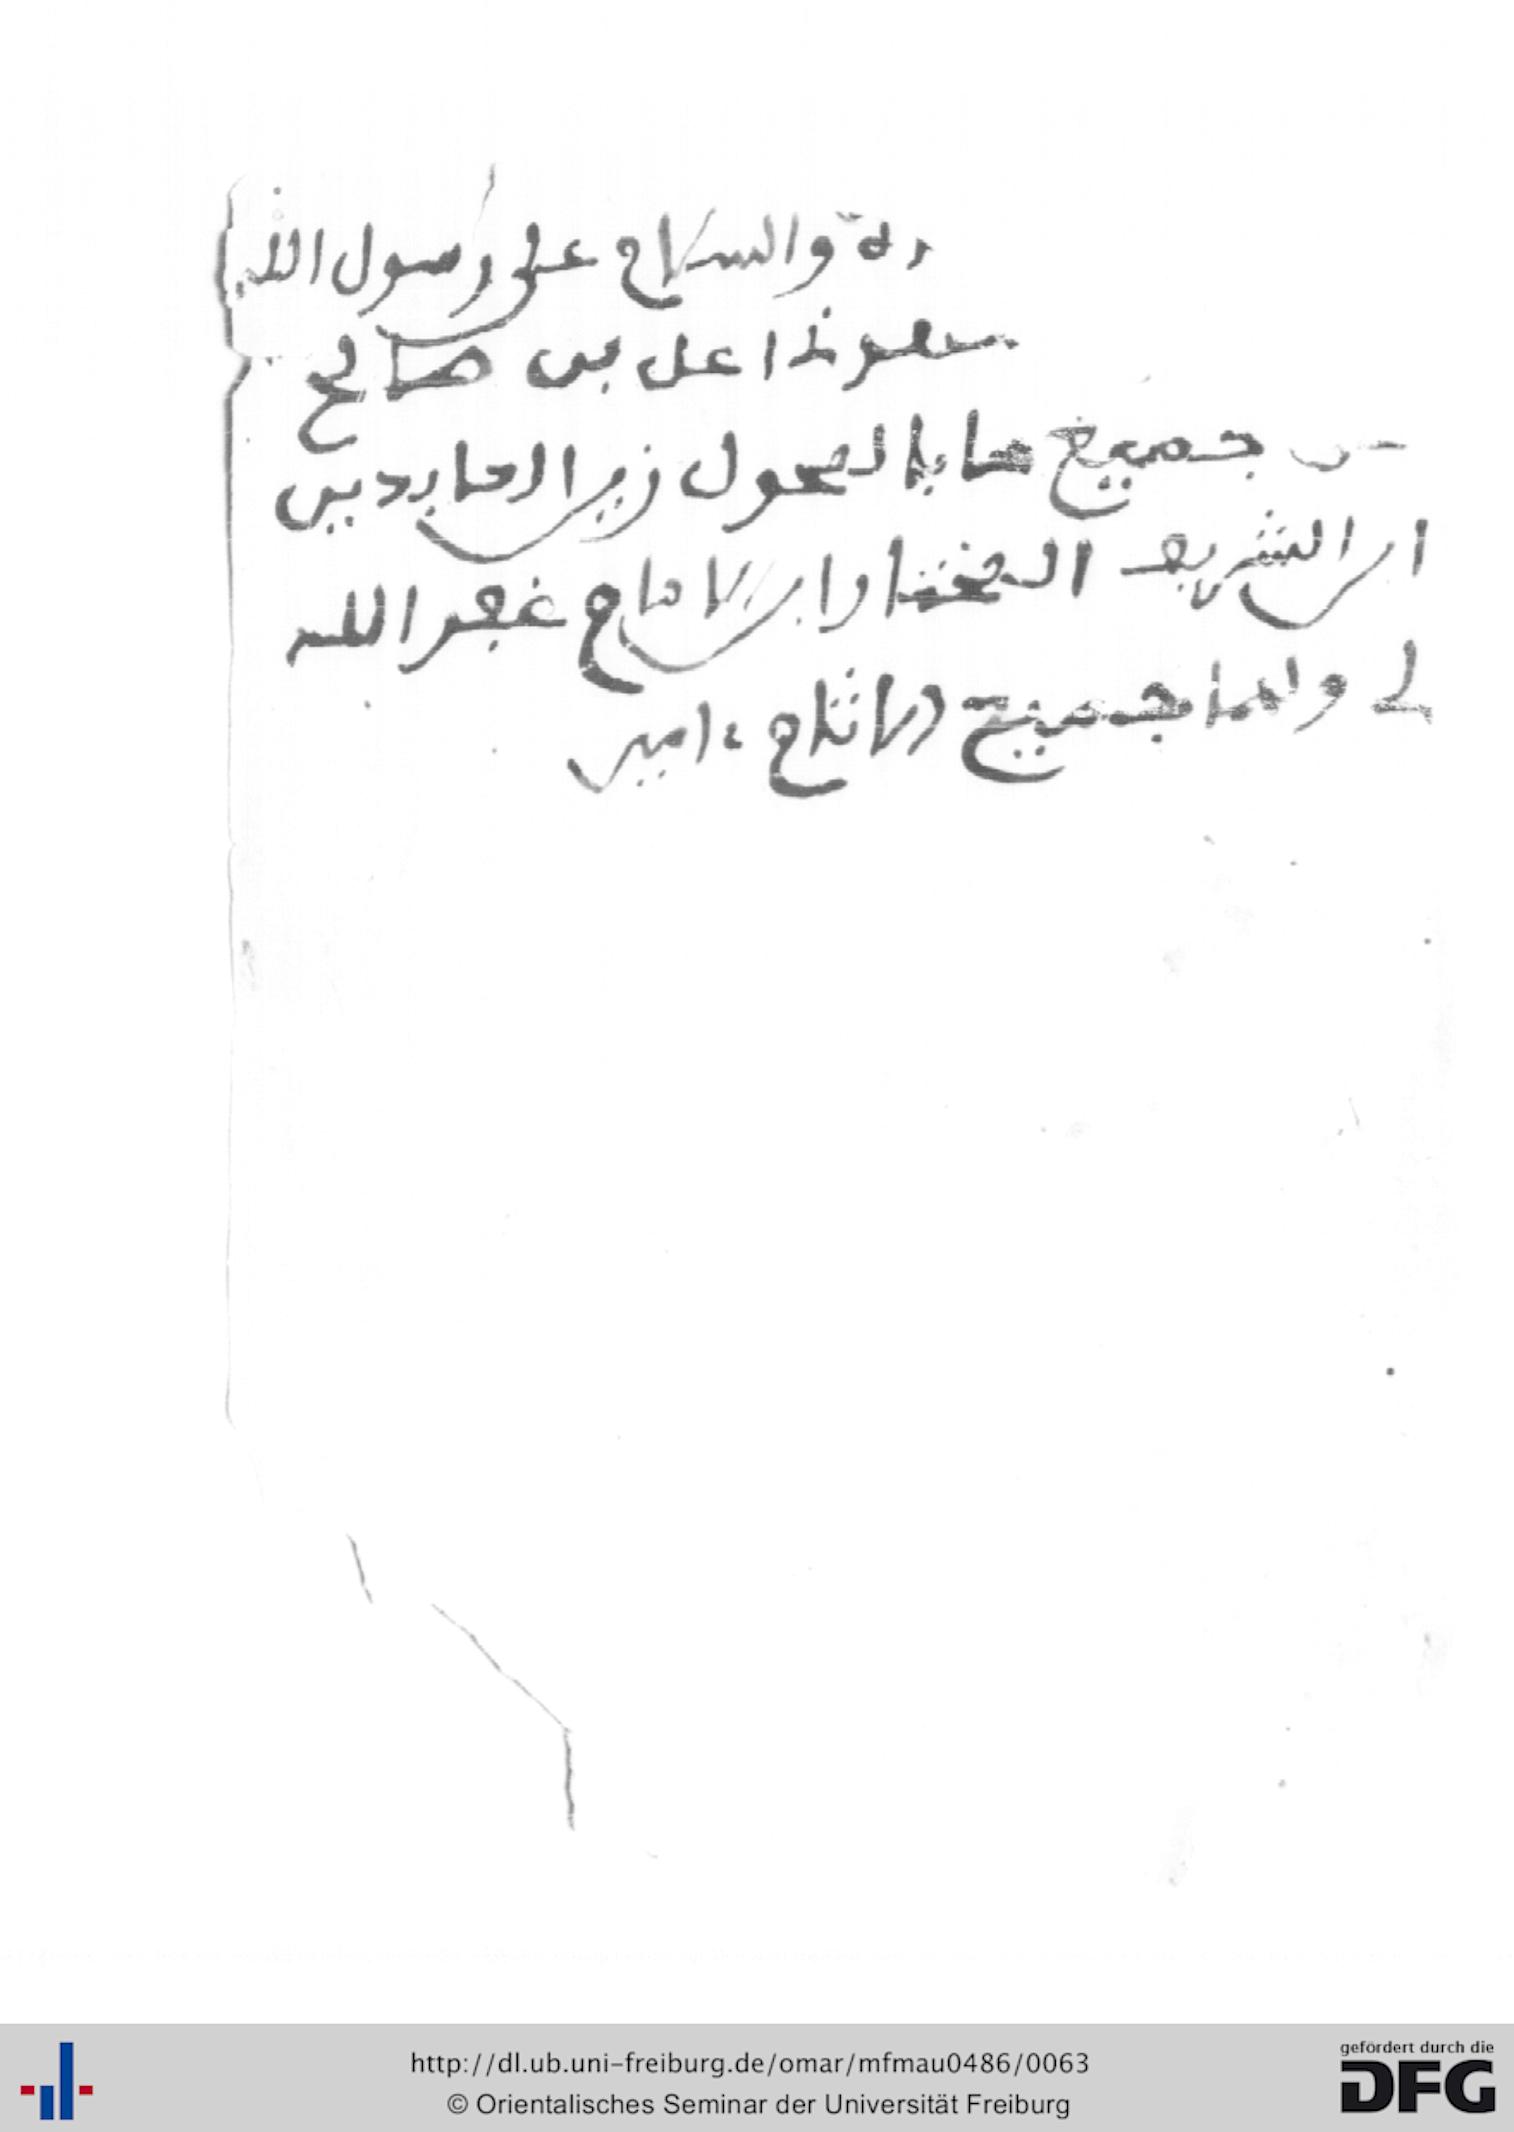 والسلام على رسول الله
اعل بن صالح
جميع زين العابدين
ابن الشريف المختار ابن الامام غفر الله
لي ولهما جميع الاثام ءامين
http://dl.ub.uni-freiburg.de/omar/mfmau0486/0063
© Orientalisches Seminar der Universität Freiburg
gefördert durch die
DFG